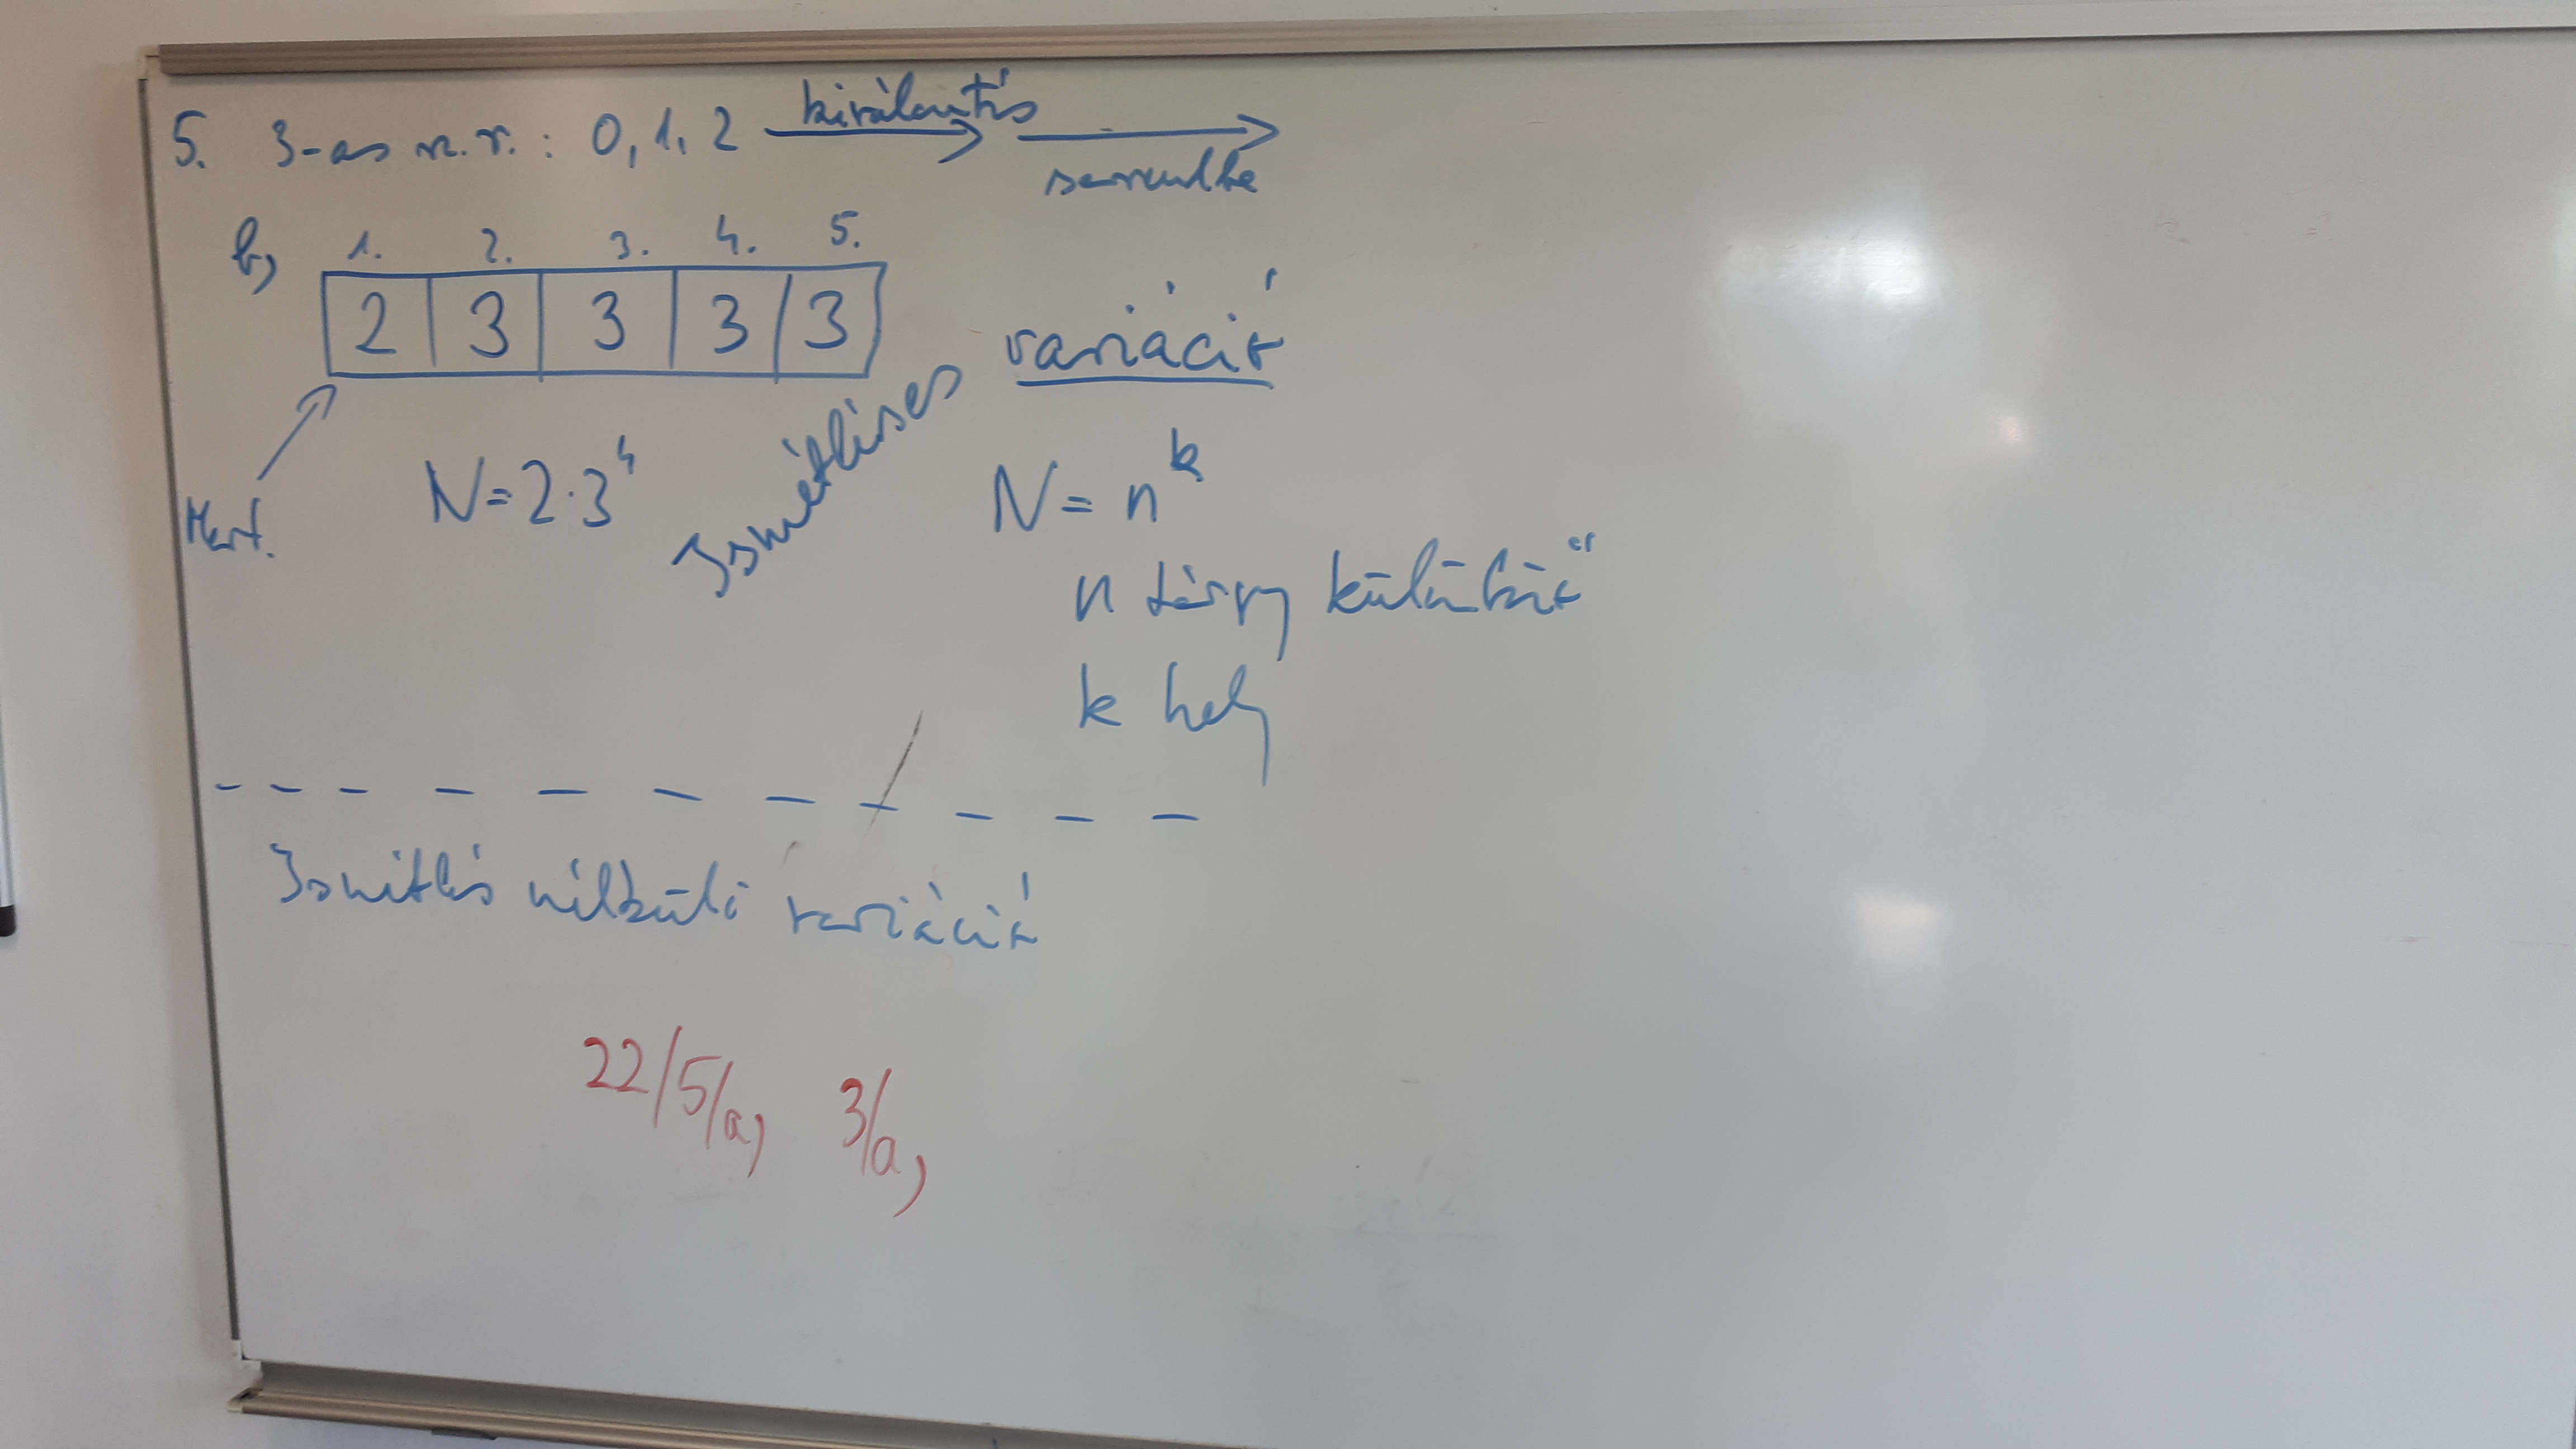 5. 3-as sz.r.: 0, 1, 2 kiválasztás
sorrendbe
b,
1. 2. 3. 4. 5.
2 3 3 3 3
Ismétléses variáció
N=2·3⁴
N = nᵏ
n tárgy különböző
k hely
Ismétlés nélküli variáció
22/5/a, 3/a,